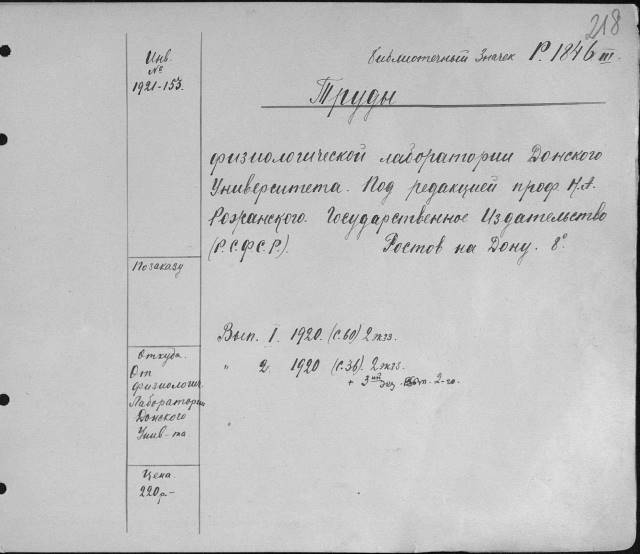 218
Библиотечный Значек Р. 1846 III.
Инв.
№
1921-153.
Труды
физиологической лаборатории Донского
Университета. Под редакцией проф. Н.А.
Рожанского. Государственное Издательство
(Р.С.Ф.С.Р.). Ростов на Дону. 8°
По заказу
Вып. 1. 1920. (С. 60) 2 экз.
" 2. 1920 (С. 36). 2 экз.
+ 3ий экз. 2-го.
Откуда.
От
физиологич.
Лаборатории
Донского
Унив-та
Цена.
220 р-